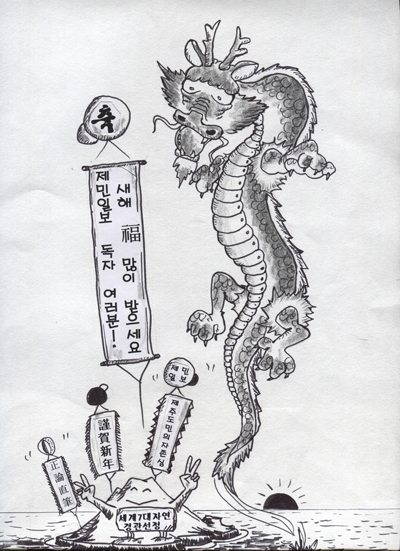 축
제민일보 독자 여러분!
새해 福 많이 받으세요
제민
일보
제주도민의자존심
謹賀新年
正論直筆
세계7대자연
경관선정